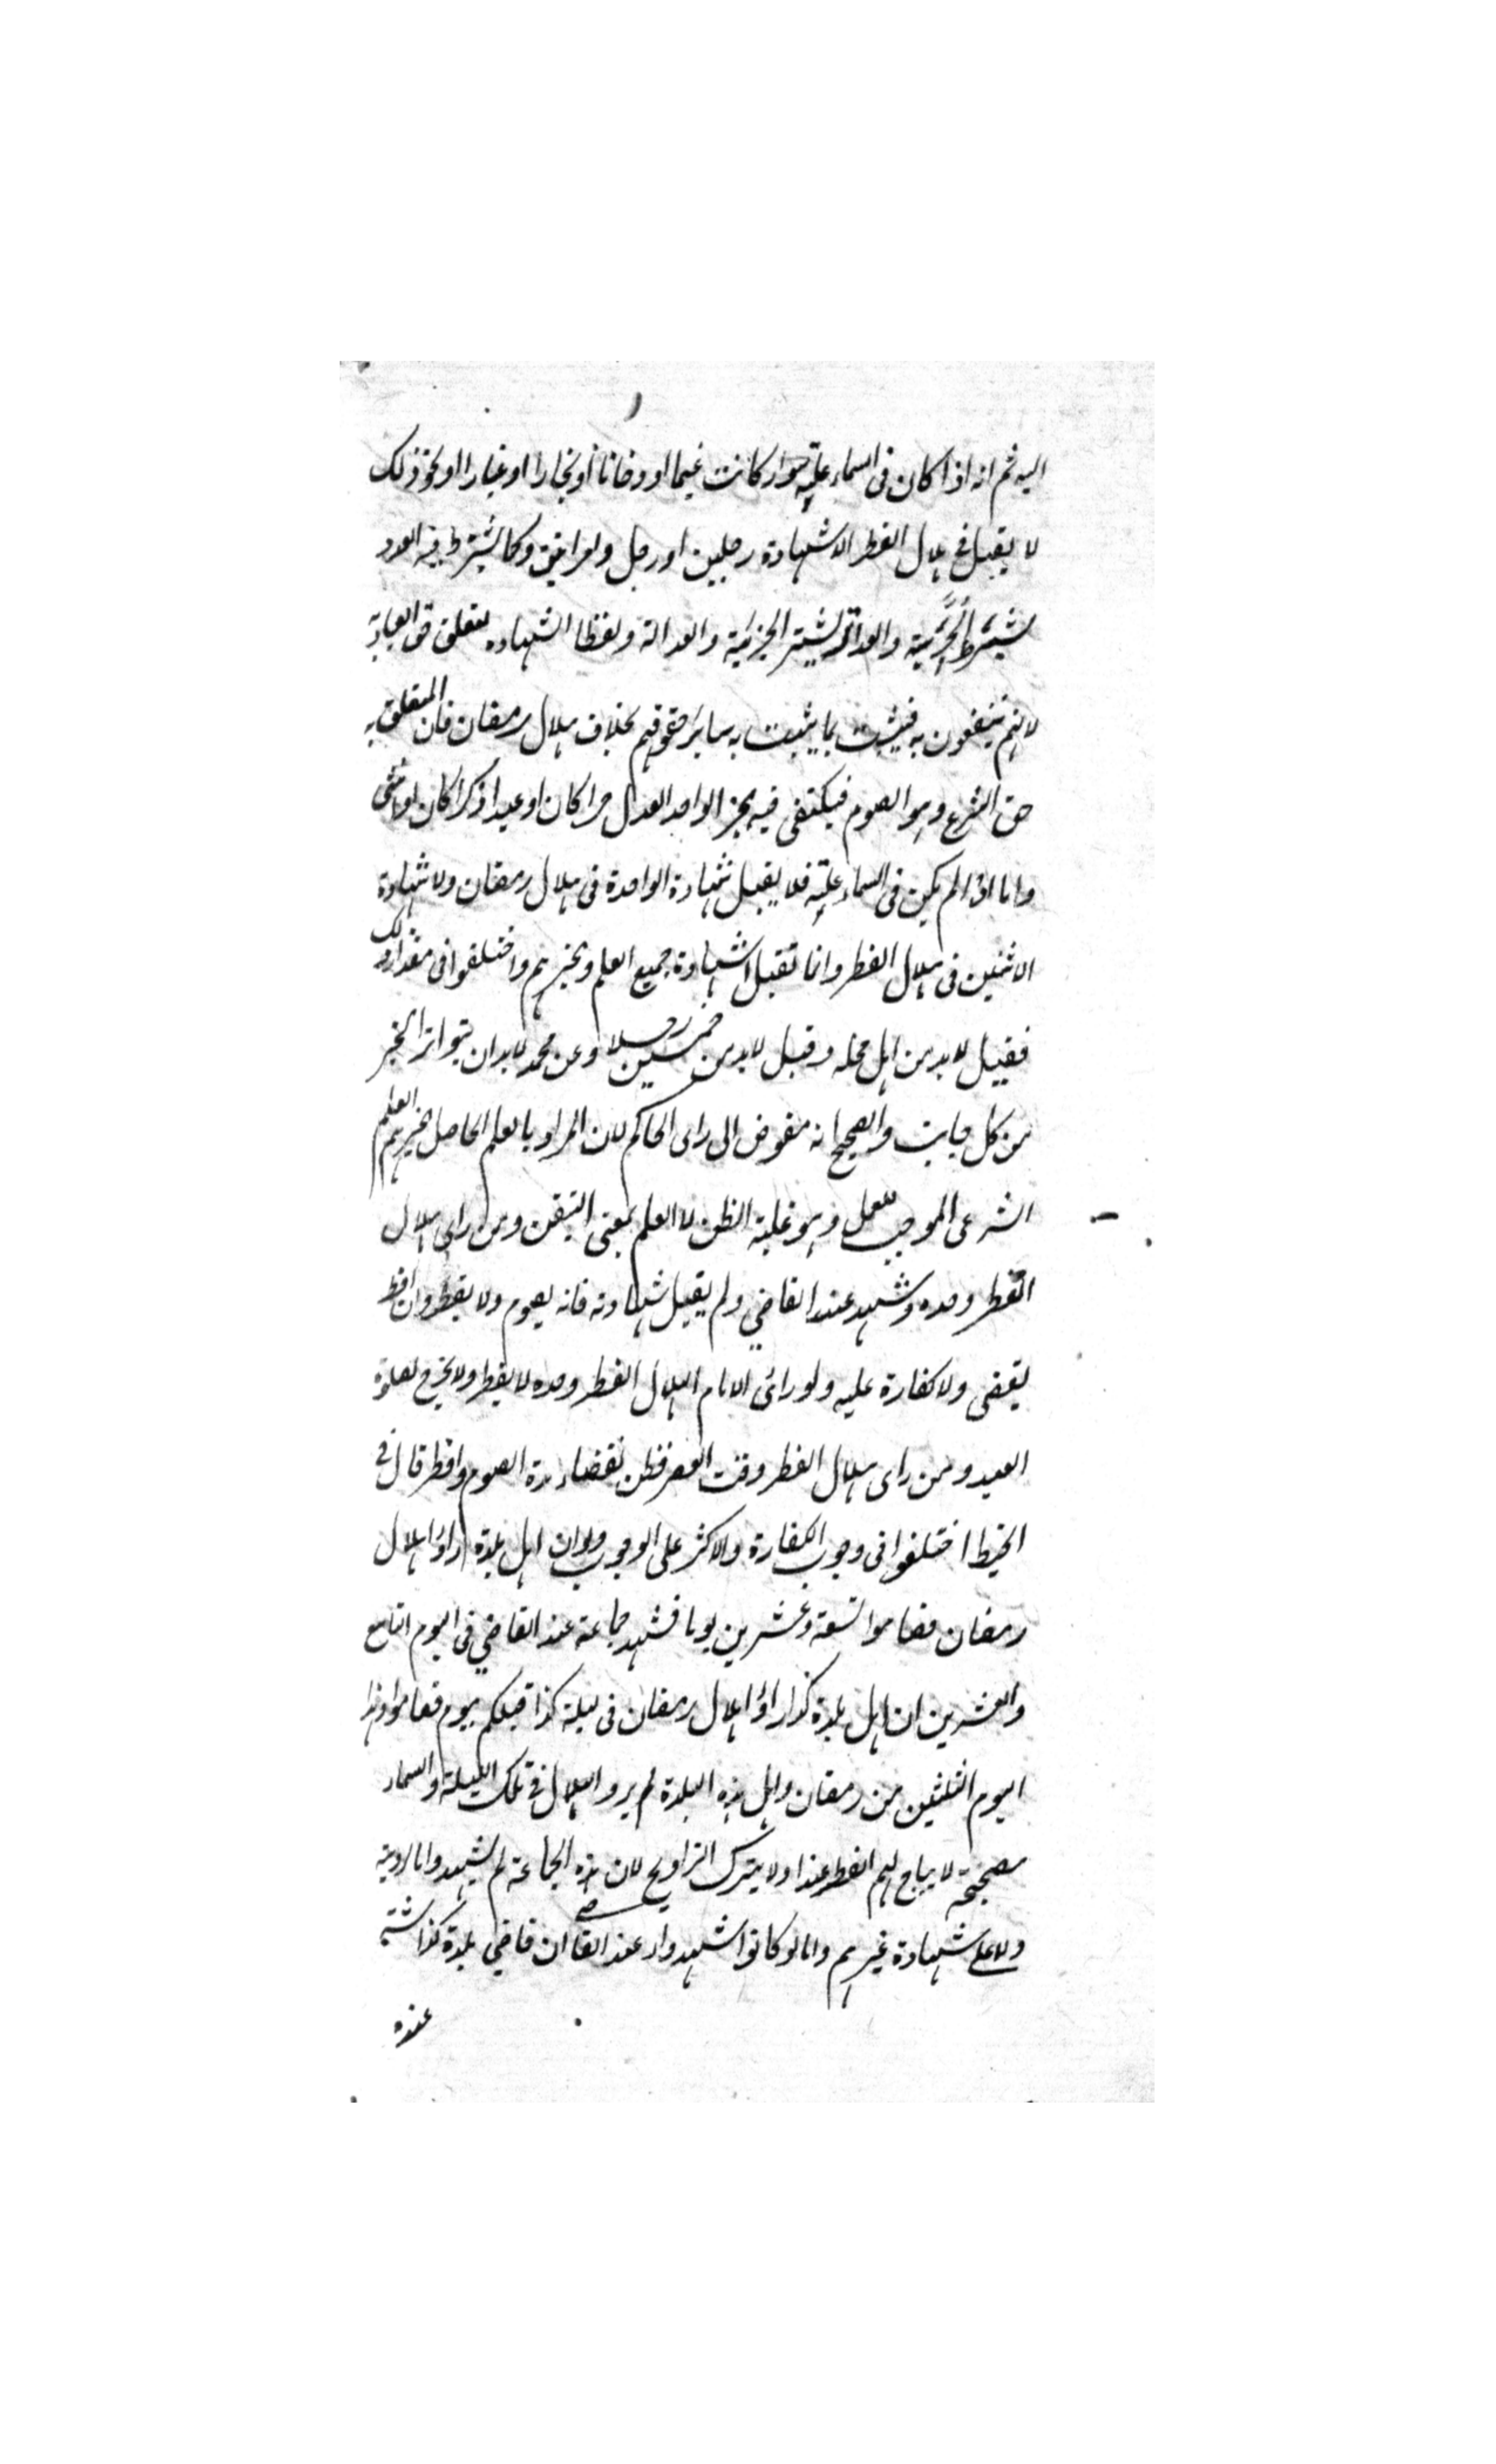 اليه ثم انه اذا كان فى السماء علة سواء كانت غيما او دخانا او بخارا او غبارا او نحو ذلك
لا يقبل فى هلال الفطر الا شهادة رجلين او رجل وامراتين وكما يشترط فيه العدد
يشترط الحرية والعدالة ولفظا الشهاده لتعلق حق العباد به
لانهم ينتفعون به فيثبت بما يثبت به سائر حقوقهم بخلاف هلال رمضان فان المتعلق به
حق الشرع وهو الصوم فيكتفى فيه بخبر الواحد العدل حرا كان او عبدا ذكرا كان او انثى
واما اذا لم يكن فى السماء علة فلا يقبل شهادة الواحدة فى هلال رمضان ولا شهادة
الاثنين فى هلال الفطر وانما تقبل شهادة جميع العلم وبخبرهم واختلفوا فى مقدار ذلك
فقيل لابد من اهل محله وقيل لابد من خمسين رجلا وعن محمد لابد ان يتواتر الخبر
من كل جانب والصحيح انه مفوض الى راى الحاكم لان المراد بالعلم الحاصل بخبرهم العلم
الشرعى الموجب للعمل وهو غلبة الظن لا العلم بمعنى التيقن ومن راى هلال
الفطر وحده وشهد عند القاضي ولم يقبل شهادته فانه يصوم ولا يفطر وان افطر
يقضى ولا كفارة عليه ولو راى الامام الهلال الفطر وحده لا يفطر ولا يخرج لصلوة
العيد ومن راى هلال الفطر وقت العصر فظن نقضاء مدة الصوم وافطر قال فى
المحيط اختلفوا فى وجوب الكفارة والاكثر على الوجوب ولو ان اهل بلدة راؤا هلال
رمضان فصاموا تسعة وعشرين يوما فشهد جماعة عند القاضي فى اليوم التاسع
والعشرين ان اهل بلدة كذا راؤا هلال رمضان فى ليلة كذا قبلكم بيوم فصاموا وهذا
اليوم الثلثين من رمضان واهل هذه البلدة لم يروا الهلال فى تلك الليلة والسماء
مصحية لا يباح لهم الفطر غدا ولا يترك التراويح لان هذه الجماعة لم يشهدوا بالروية
ولا على شهادة غيرهم واما لو كانوا شهدوا عند القاضي ان قاضي بلدة كذا شهد
عنده